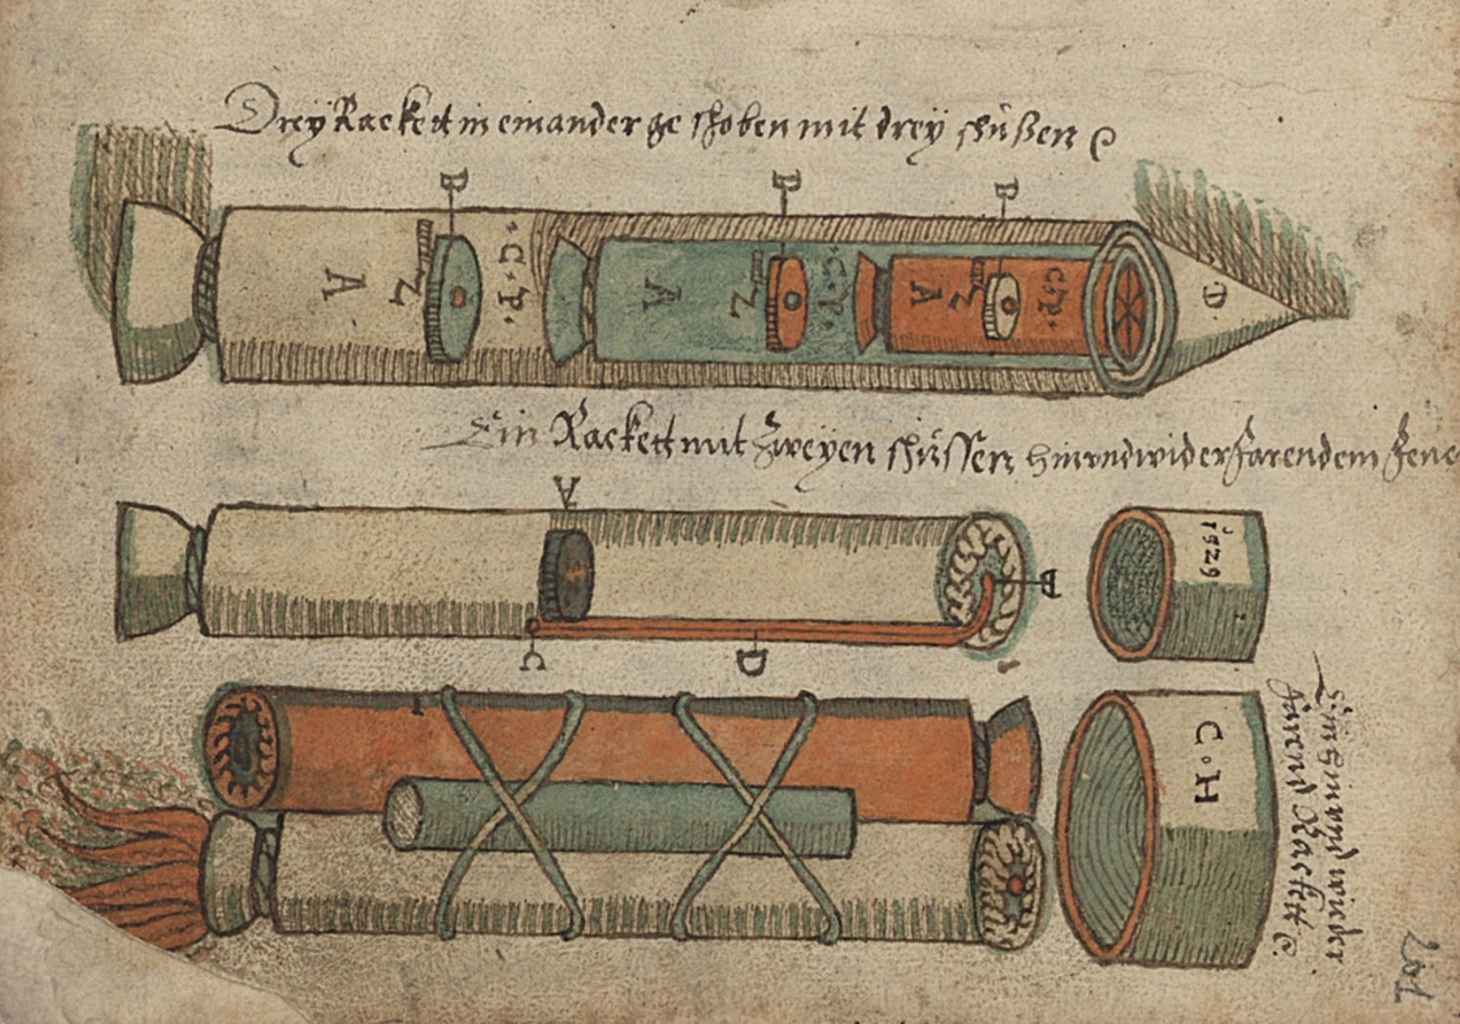 Dreÿ Rackett in einander geschoben mit dreÿ schüßen
B B B
A Z C.P. A Z C.P. A Z C.P. D.
Ein Rackett mit Zweÿen schüssen hin vnd wider farendem
A
1529
B
C D
C.H
Ein hin vnd wieder
farend Rackett
201